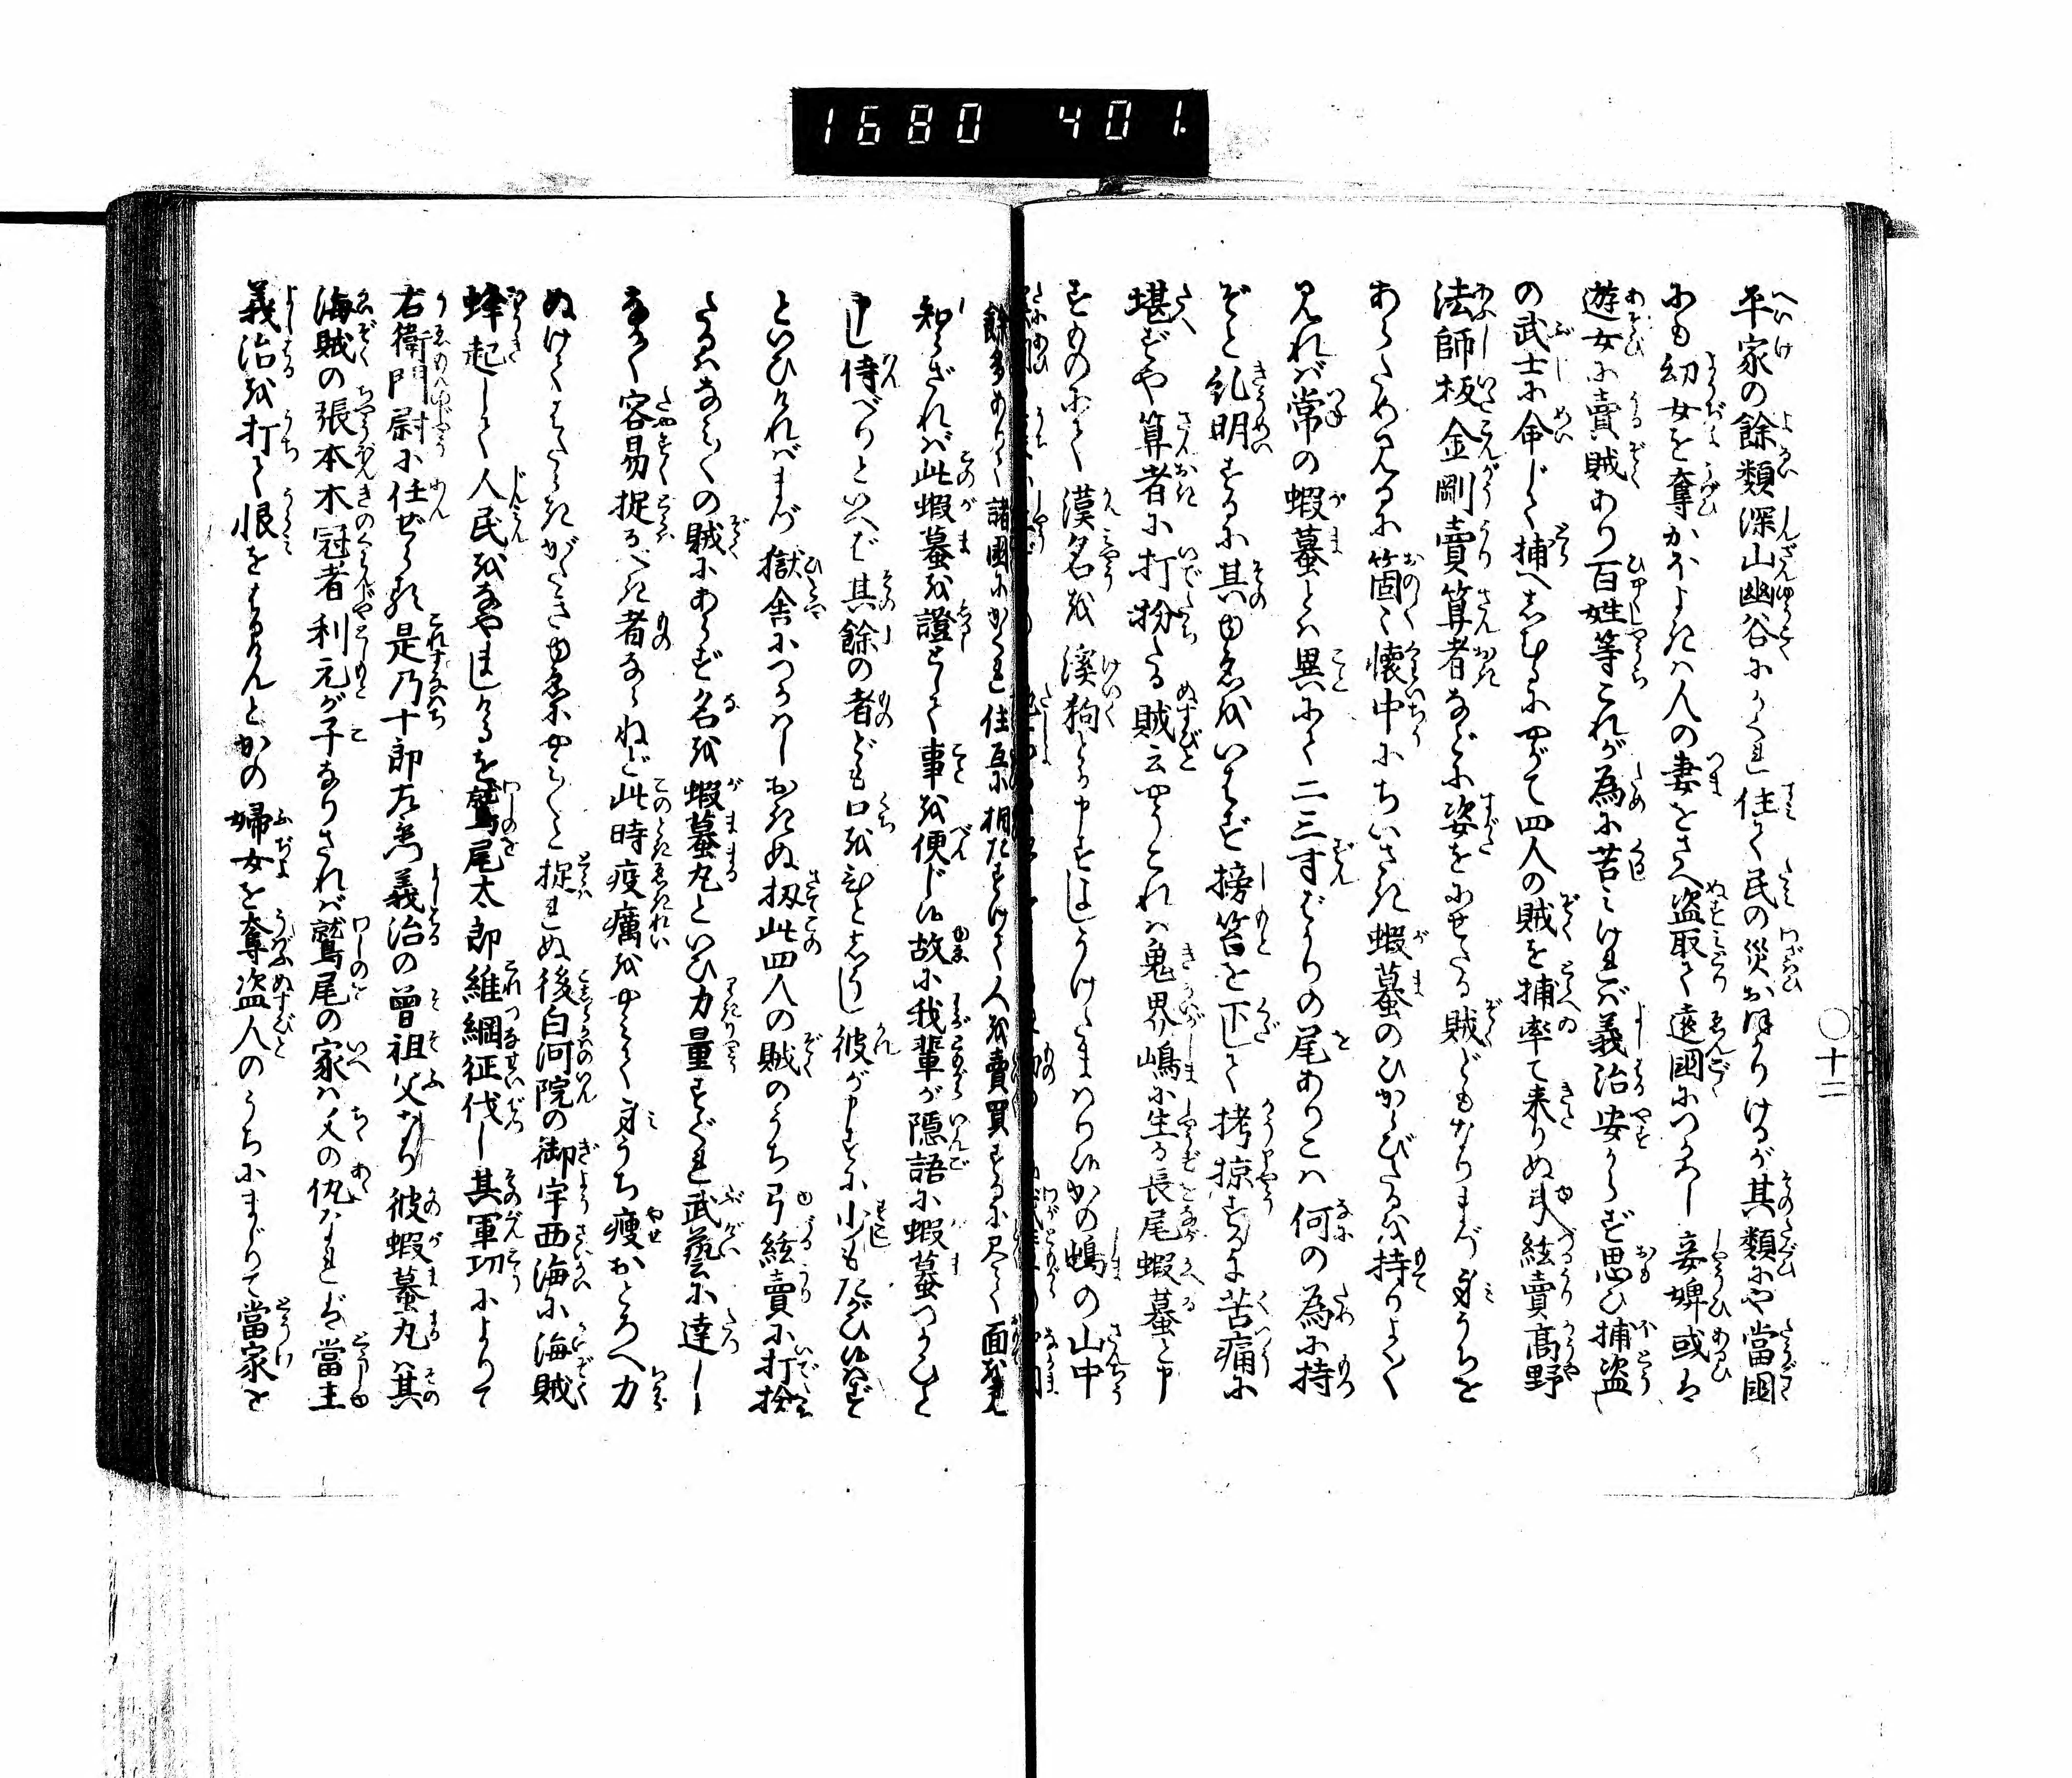 1680 401.
〇十二
平家の餘類深山幽谷にかくれ住て民の災おほかりけるが其類にや當國
にも幼女を奪かほよきは人の妻をさへ盗取て遠國につかはし妾婢或は
遊女に賣賊あり百姓等これが為に苦みければ義治安からず思ひ捕盗
の武士に命じて捕へしむるにやがて四人の賊を捕率て来りぬ弓絃賣高野
法師板金剛賣算者などに姿をにせたる賊どもなりまづ身うちを
あらため見るに箇々懐中にちいさき蝦蟇のひからびたるを持りよく
見れば常の蝦蟇とは異にて二三寸ばかりの尾ありこは何の為に持
ぞと糺明するに其ゆゑをいはず搒笞を下して拷掠するに苦痛に
堪ずや算者に打扮たる賊云やうこれは鬼界が嶋に生る長尾蝦蟇と申
すものにて漢名を溪狗とか申すよしうけたまはりぬかの嶋の山中
餘多ありて諸國にかくれ住互に相たすけて人を賣買するに尽く面を見
知らざれば此蝦蟇を證として事を便じ候故に我輩が隠語に蝦蟇つかひと
申し侍べりといへば其餘の者ども口をひとしくし彼が申すに少もたがひ候はず
といひければまづ獄舎につかはしおきぬ扨此四人の賊のうち弓絃賣に打扮
たるはなみ〱の賊にあらず名を蝦蟇丸といひ力量すぐれ武藝に達し
なか〱容易捉るべき者ならねど此時疫癘をやみて身うち痩おとろへ力
ぬけてはたらきがたきゆゑにやみ〱と捉れぬ後白河院の御宇西海に海賊
蜂起して人民をなやましけるを鷲尾太郎維綱征伐し其軍功によりて
右衛門尉に任ぜらる是乃十郎左衛門義治の曽祖父なり彼蝦蟇丸は其
海賊の張本木冠者利元が子なりされば鷲尾の家は父の仇なれば當主
義治を打て恨をはらさんとかの婦女を奪盗人のうちにまじりて當家を